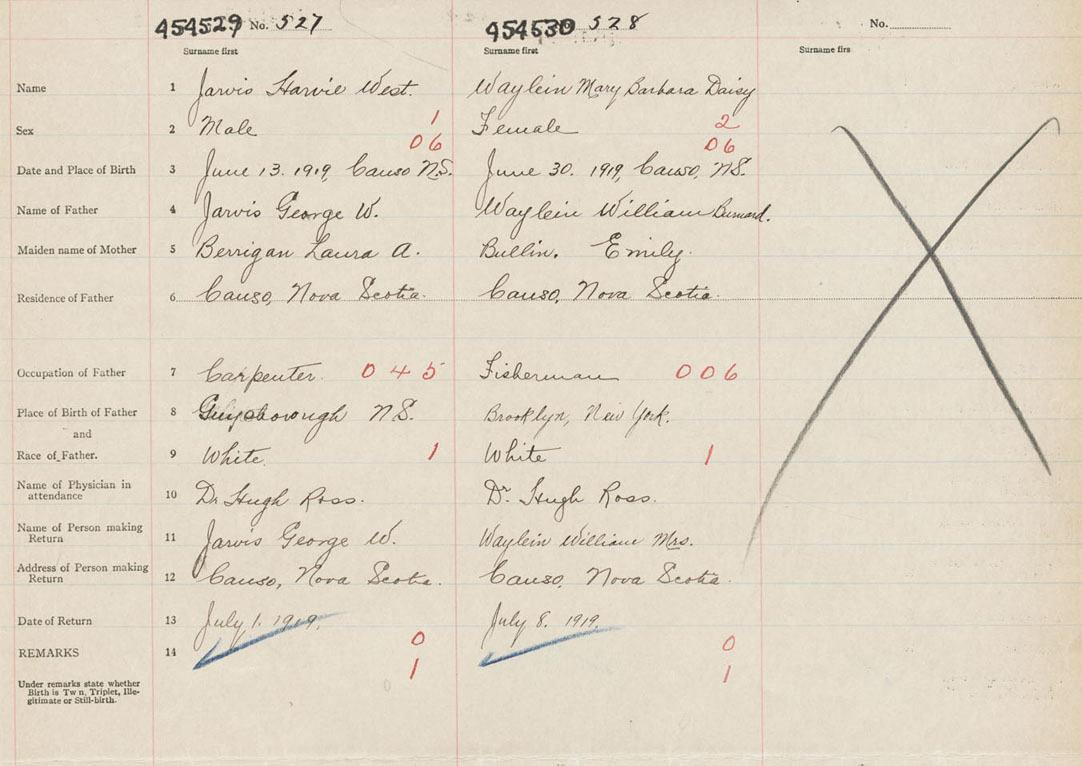 454529 No. 527 454530 528 No.
Surname first Surname first Surname firs
Name 1 Jarvis Harvie West. Waylein Mary Barbara Daisy
1 2
Sex 2 Male Female
06 06
Date and Place of Birth 3 June 13. 1919, Canso N.S. June 30. 1919, Canso, N.S.
Name of Father 4 Jarvis George W. Waylein William Burnard.
Maiden name of Mother 5 Berrigan Laura A. Bullin. Emily.
Residence of Father 6 Canso, Nova Scotia. Canso, Nova Scotia.
Occupation of Father 7 Carpenter. 045 Fisherman 006
Place of Birth of Father 8 Guysborough N.S. Brooklyn, New York.
and
Race of Father. 9 White. 1 White 1
Name of Physician in
attendance 10 Dr. Hugh Ross. Dr. Hugh Ross.
Name of Person making
Return 11 Jarvis George W. Waylein William Mrs.
Address of Person making
Return 12 Canso, Nova Scotia. Canso, Nova Scotia.
Date of Return 13 July 1. 1919. July 8. 1919.
0 0
REMARKS 14
1 1
0
Under remarks state whether
Birth is Tw n, Triplet, Ille-
gitimate or Still-birth.